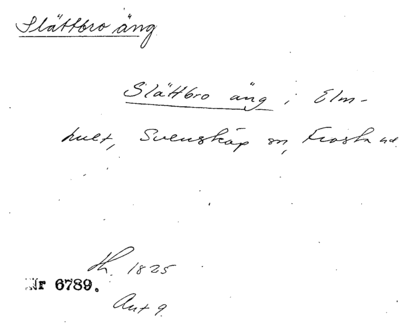 Slättbro äng
Slättbro äng i Elm-
hult, Svensköp sn, Frosta hd.
Th. 1825
Nr 6789.
Avt 9.